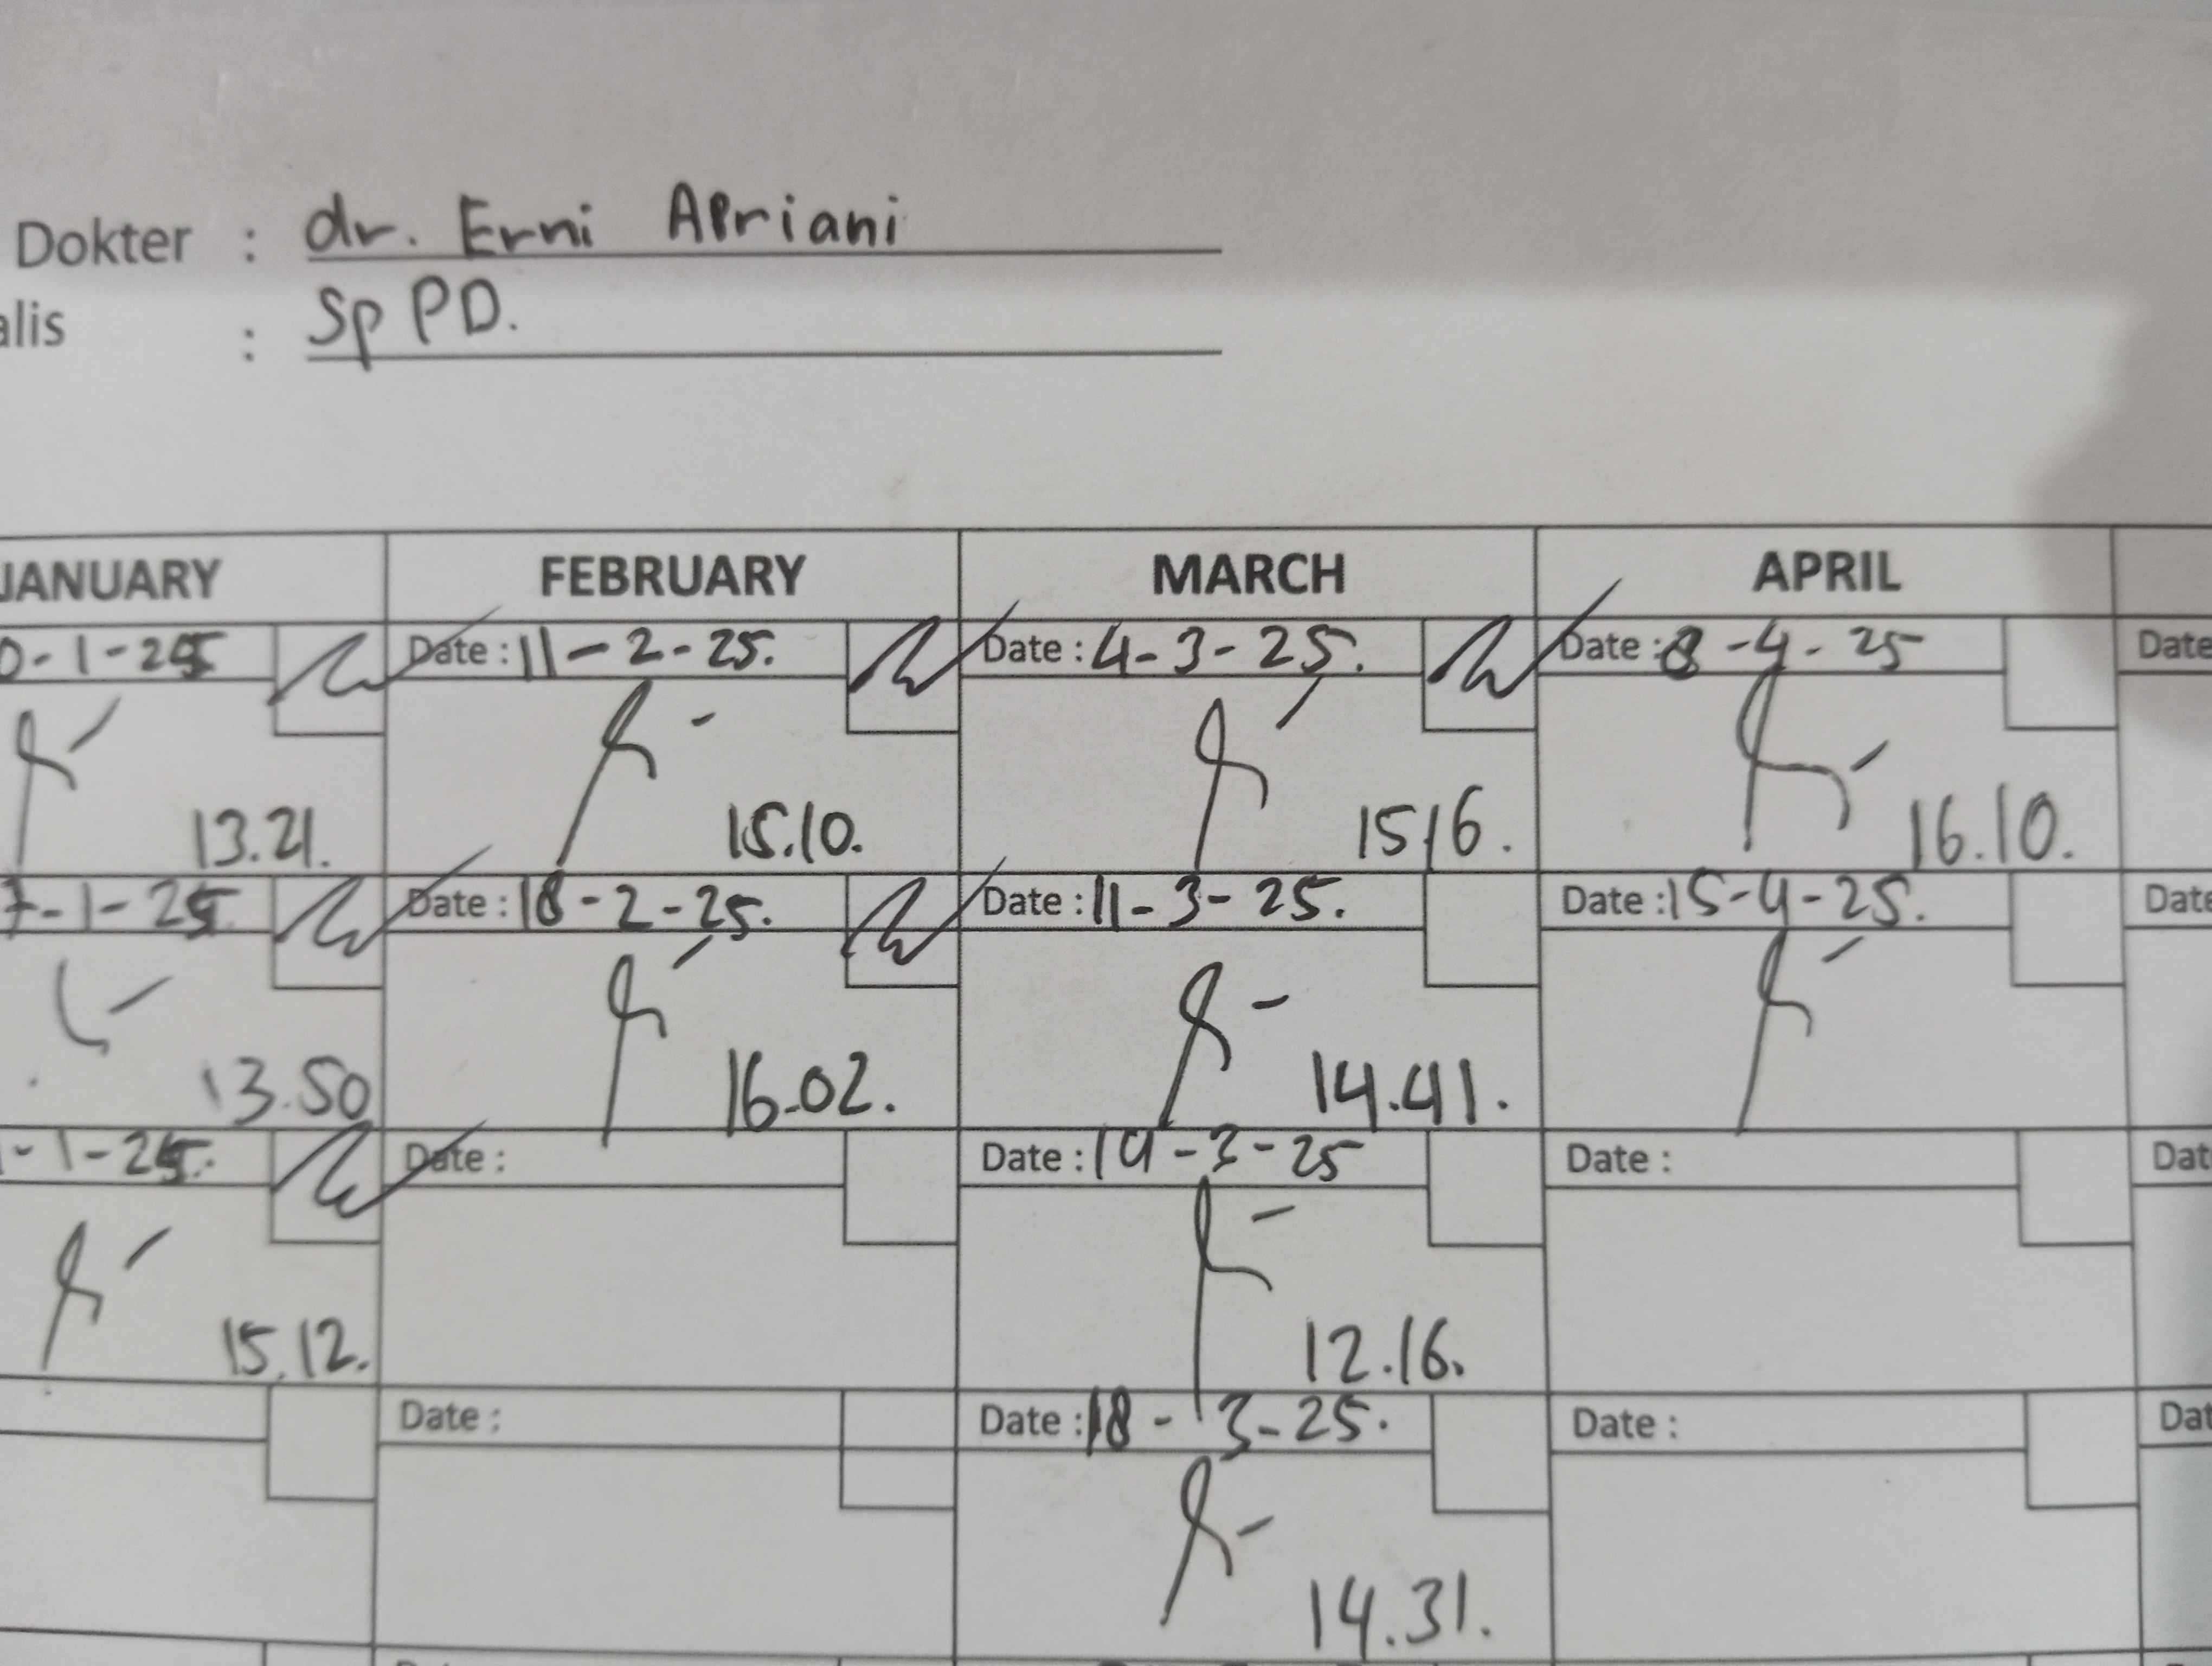 Dokter : dr. Erni Apriani
alis : Sp PD.
JANUARY FEBRUARY MARCH APRIL
0-1-25 Date : 11-2-25. Date : 4-3-25. Date : 8-4-25 Date
13.21. 15.10. 15 16. 16.10.
7-1-25 Date : 18-2-25. Date : 11-3-25. Date : 15-4-25. Date
13.50 16.02. 14.41.
-1-25. Date : Date : Date : Dat
15.12. 12.16.
Date : Date : 18-3-25. Date : Dat
14.31.